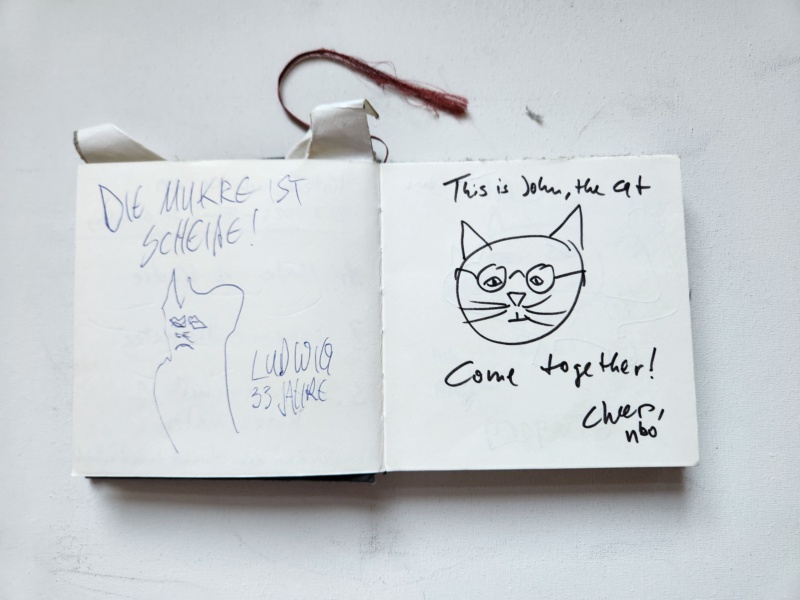 DIE MUKRE IST
SCHEIßE!
LUDWIG
33 JAHRE
This is John, the cat
Come together!
Cheers,
nbo